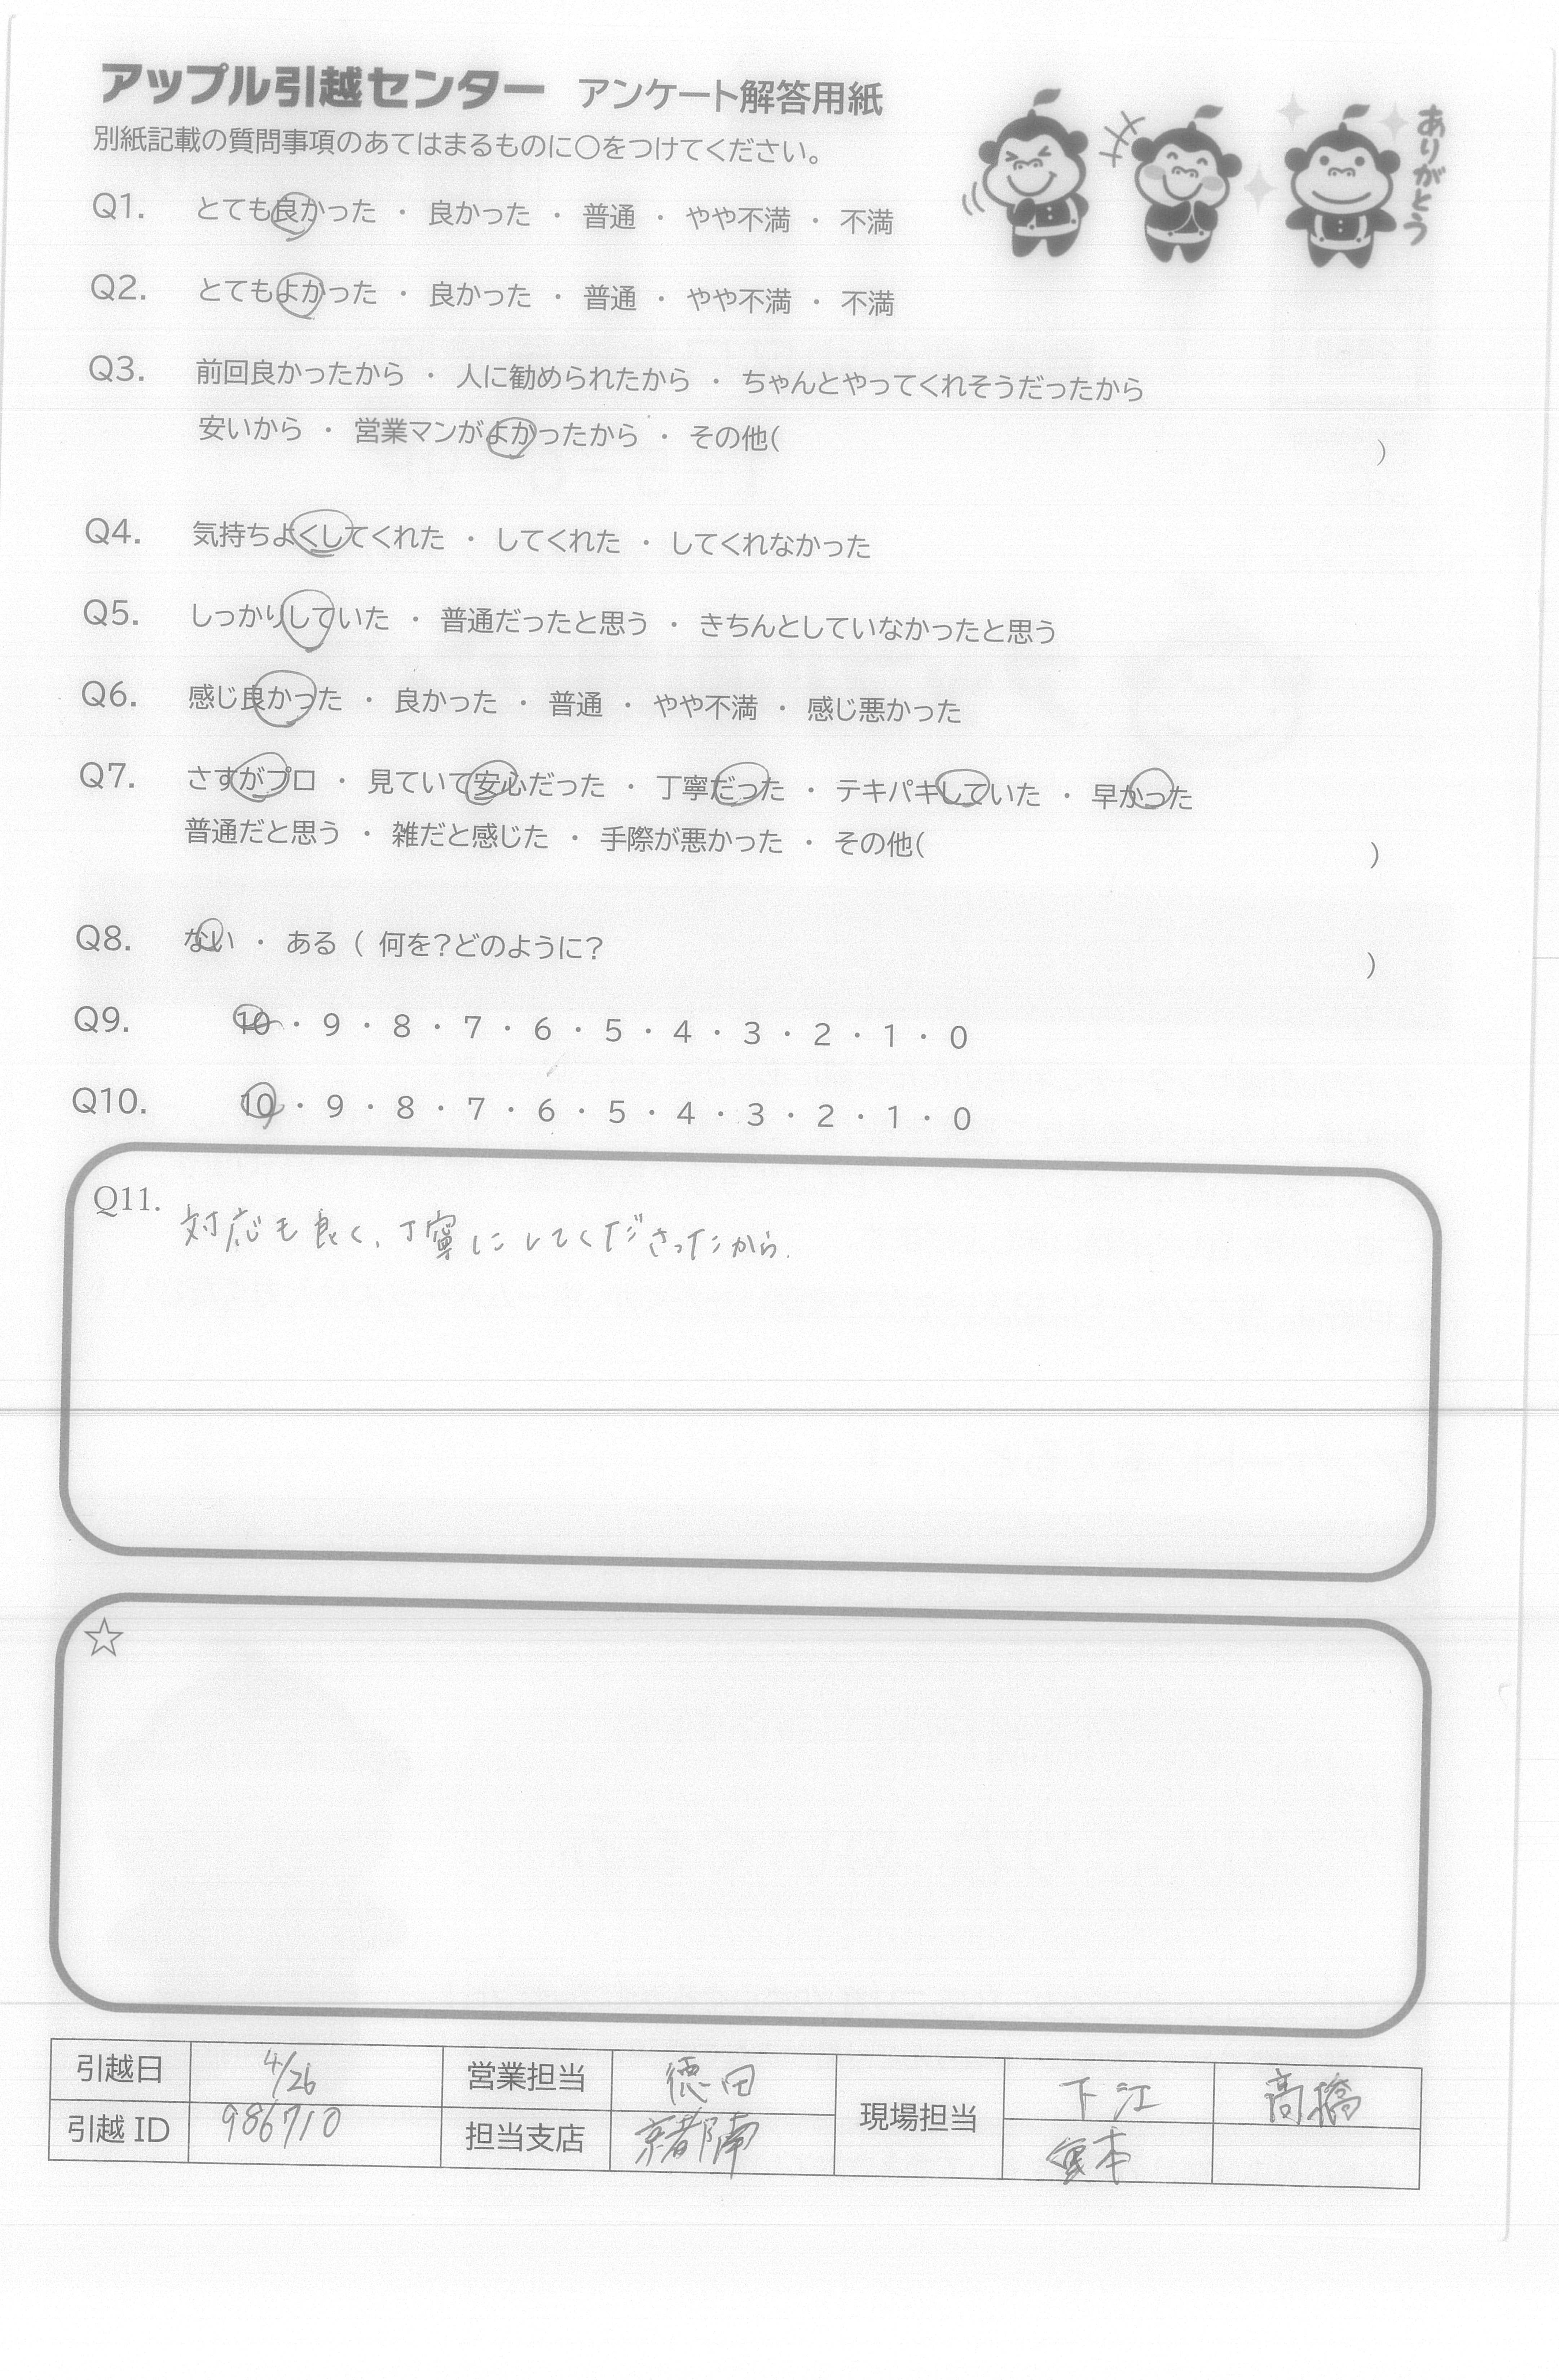 アップル引越センター アンケート解答用紙
ありがとう
別紙記載の質問事項のあてはまるものに○をつけてください。
Q1. とても良かった ・ 良かった ・ 普通 ・ やや不満 ・ 不満
Q2. とてもよかった ・ 良かった ・ 普通 ・ やや不満 ・ 不満
Q3. 前回良かったから ・ 人に勧められたから ・ ちゃんとやってくれそうだったから
安いから ・ 営業マンがよかったから ・ その他( )
Q4. 気持ちよくしてくれた ・ してくれた ・ してくれなかった
Q5. しっかりしていた ・ 普通だったと思う ・ きちんとしていなかったと思う
Q6. 感じ良かった ・ 良かった ・ 普通 ・ やや不満 ・ 感じ悪かった
Q7. さすがプロ ・ 見ていて安心だった ・ 丁寧だった ・ テキパキしていた ・ 早かった
普通だと思う ・ 雑だと感じた ・ 手際が悪かった ・ その他( )
Q8. ない ・ ある ( 何を?どのように? )
Q9. 10 ・ 9 ・ 8 ・ 7 ・ 6 ・ 5 ・ 4 ・ 3 ・ 2 ・ 1 ・ 0
Q10. 10 ・ 9 ・ 8 ・ 7 ・ 6 ・ 5 ・ 4 ・ 3 ・ 2 ・ 1 ・ 0
Q11. 対応も良く、丁寧にしてくださったから.
☆
引越日 4/26 営業担当 徳田 現場担当 下江 高橋
引越ID 986710 担当支店 京都南